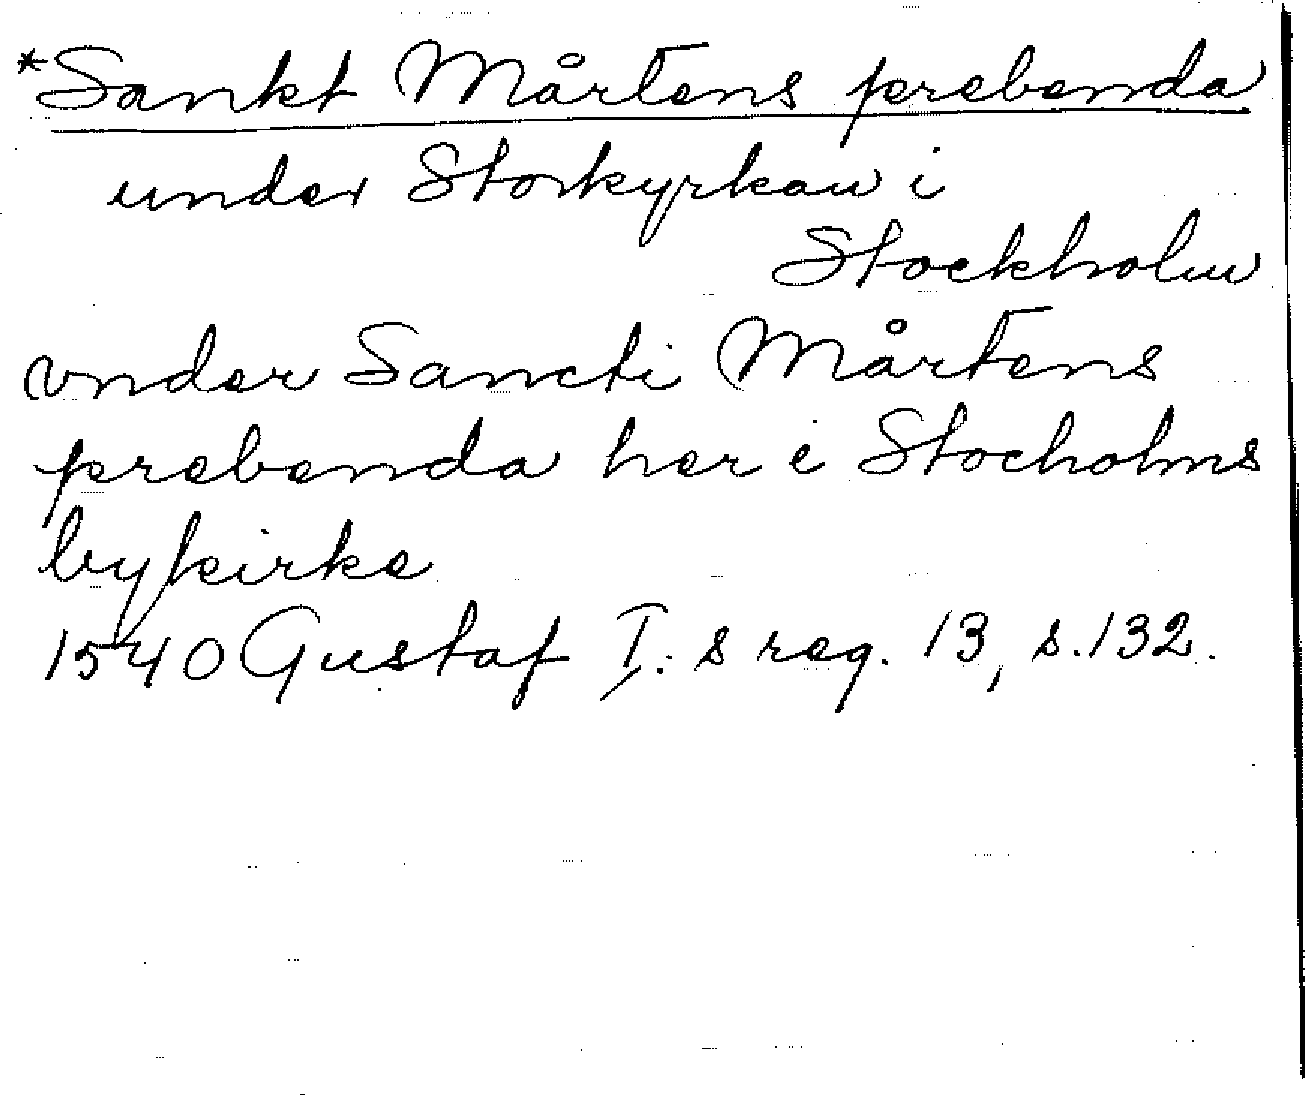 *Sankt Mårtens prebenda
under Storkyrkan i
Stockholm
vnder Sancti Mårtens
prebenda her i Stocholms
bykirke
1540 Gustaf I:s reg. 13, s. 132.